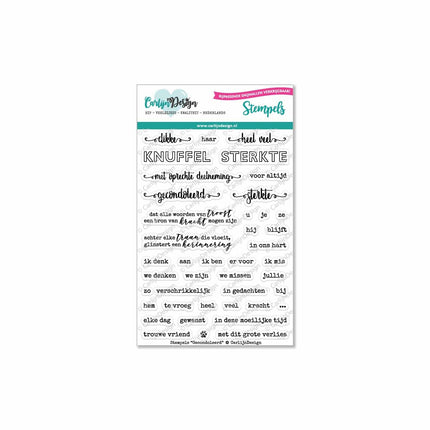 CarlijnDesign
DIY - VEELZIJDIG - KWALITEIT - NEDERLANDS
BIJPASSENDE SNIJMALLEN VERKRIJGBAAR!
Stempels
www.carlijndesign.nl
dikke haar heel veel
KNUFFEL STERKTE
met oprechte deelneming voor altijd
gecondoleerd sterkte
dat alle woorden van troost u je ze
een bron van kracht mogen zijn
hij blijft
achter elke traan die vloeit,
glinstert een herinnering in ons hart
ik denk aan ik ben er voor ik mis
we denken we zijn we missen jullie
zo verschrikkelijk in gedachten bij
hem te vroeg heel veel kracht ...
elke dag gewenst in deze moeilijke tijd
trouwe vriend met dit grote verlies
Stempels "Gecondoleerd" © CarlijnDesign